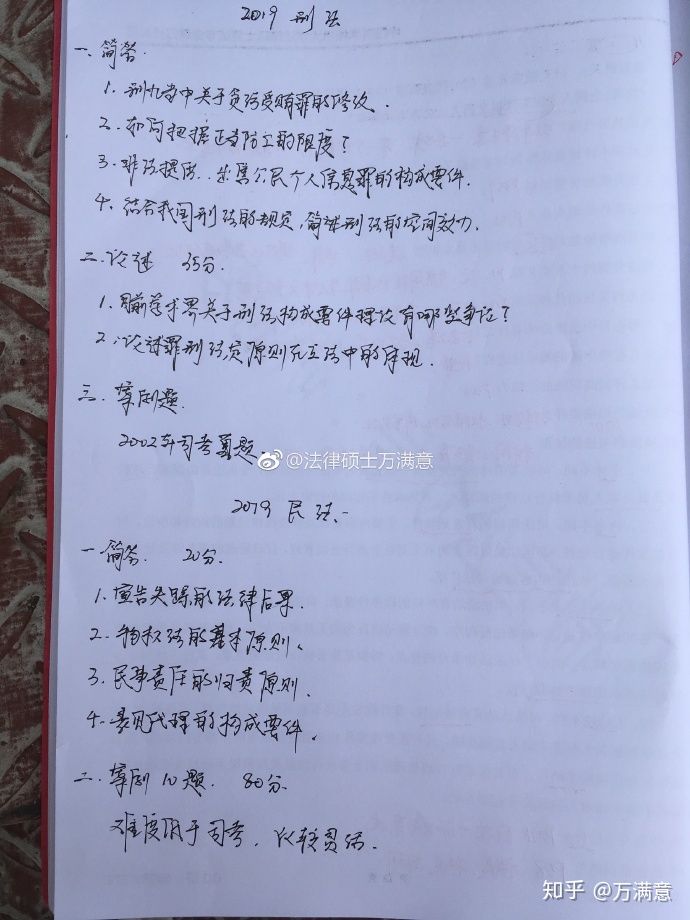 2019 刑法
一、简答.
1. 刑九当中关于贪污受贿罪的修改.
2. 如何把握正当防卫的限度?
3. 非法提供、出售公民个人信息罪的构成要件.
4. 结合我国刑法的规定,简述刑法的空间效力.
二.论述 35分.
1. 目前学术界关于刑法构成要件理论有哪些争论?
2. 论述罪刑法定原则在立法中的体现.
三. 案例题
2002年司考真题.
@法律硕士万满意
2019 民法.
一简答. 20分.
1. 宣告失踪的法律后果.
2. 物权法的基本原则.
3. 民事责任的归责原则.
4. 表见代理的构成要件.
二. 案例10题. 80分.
难度同于司考, 比较灵活.
知乎 @万满意